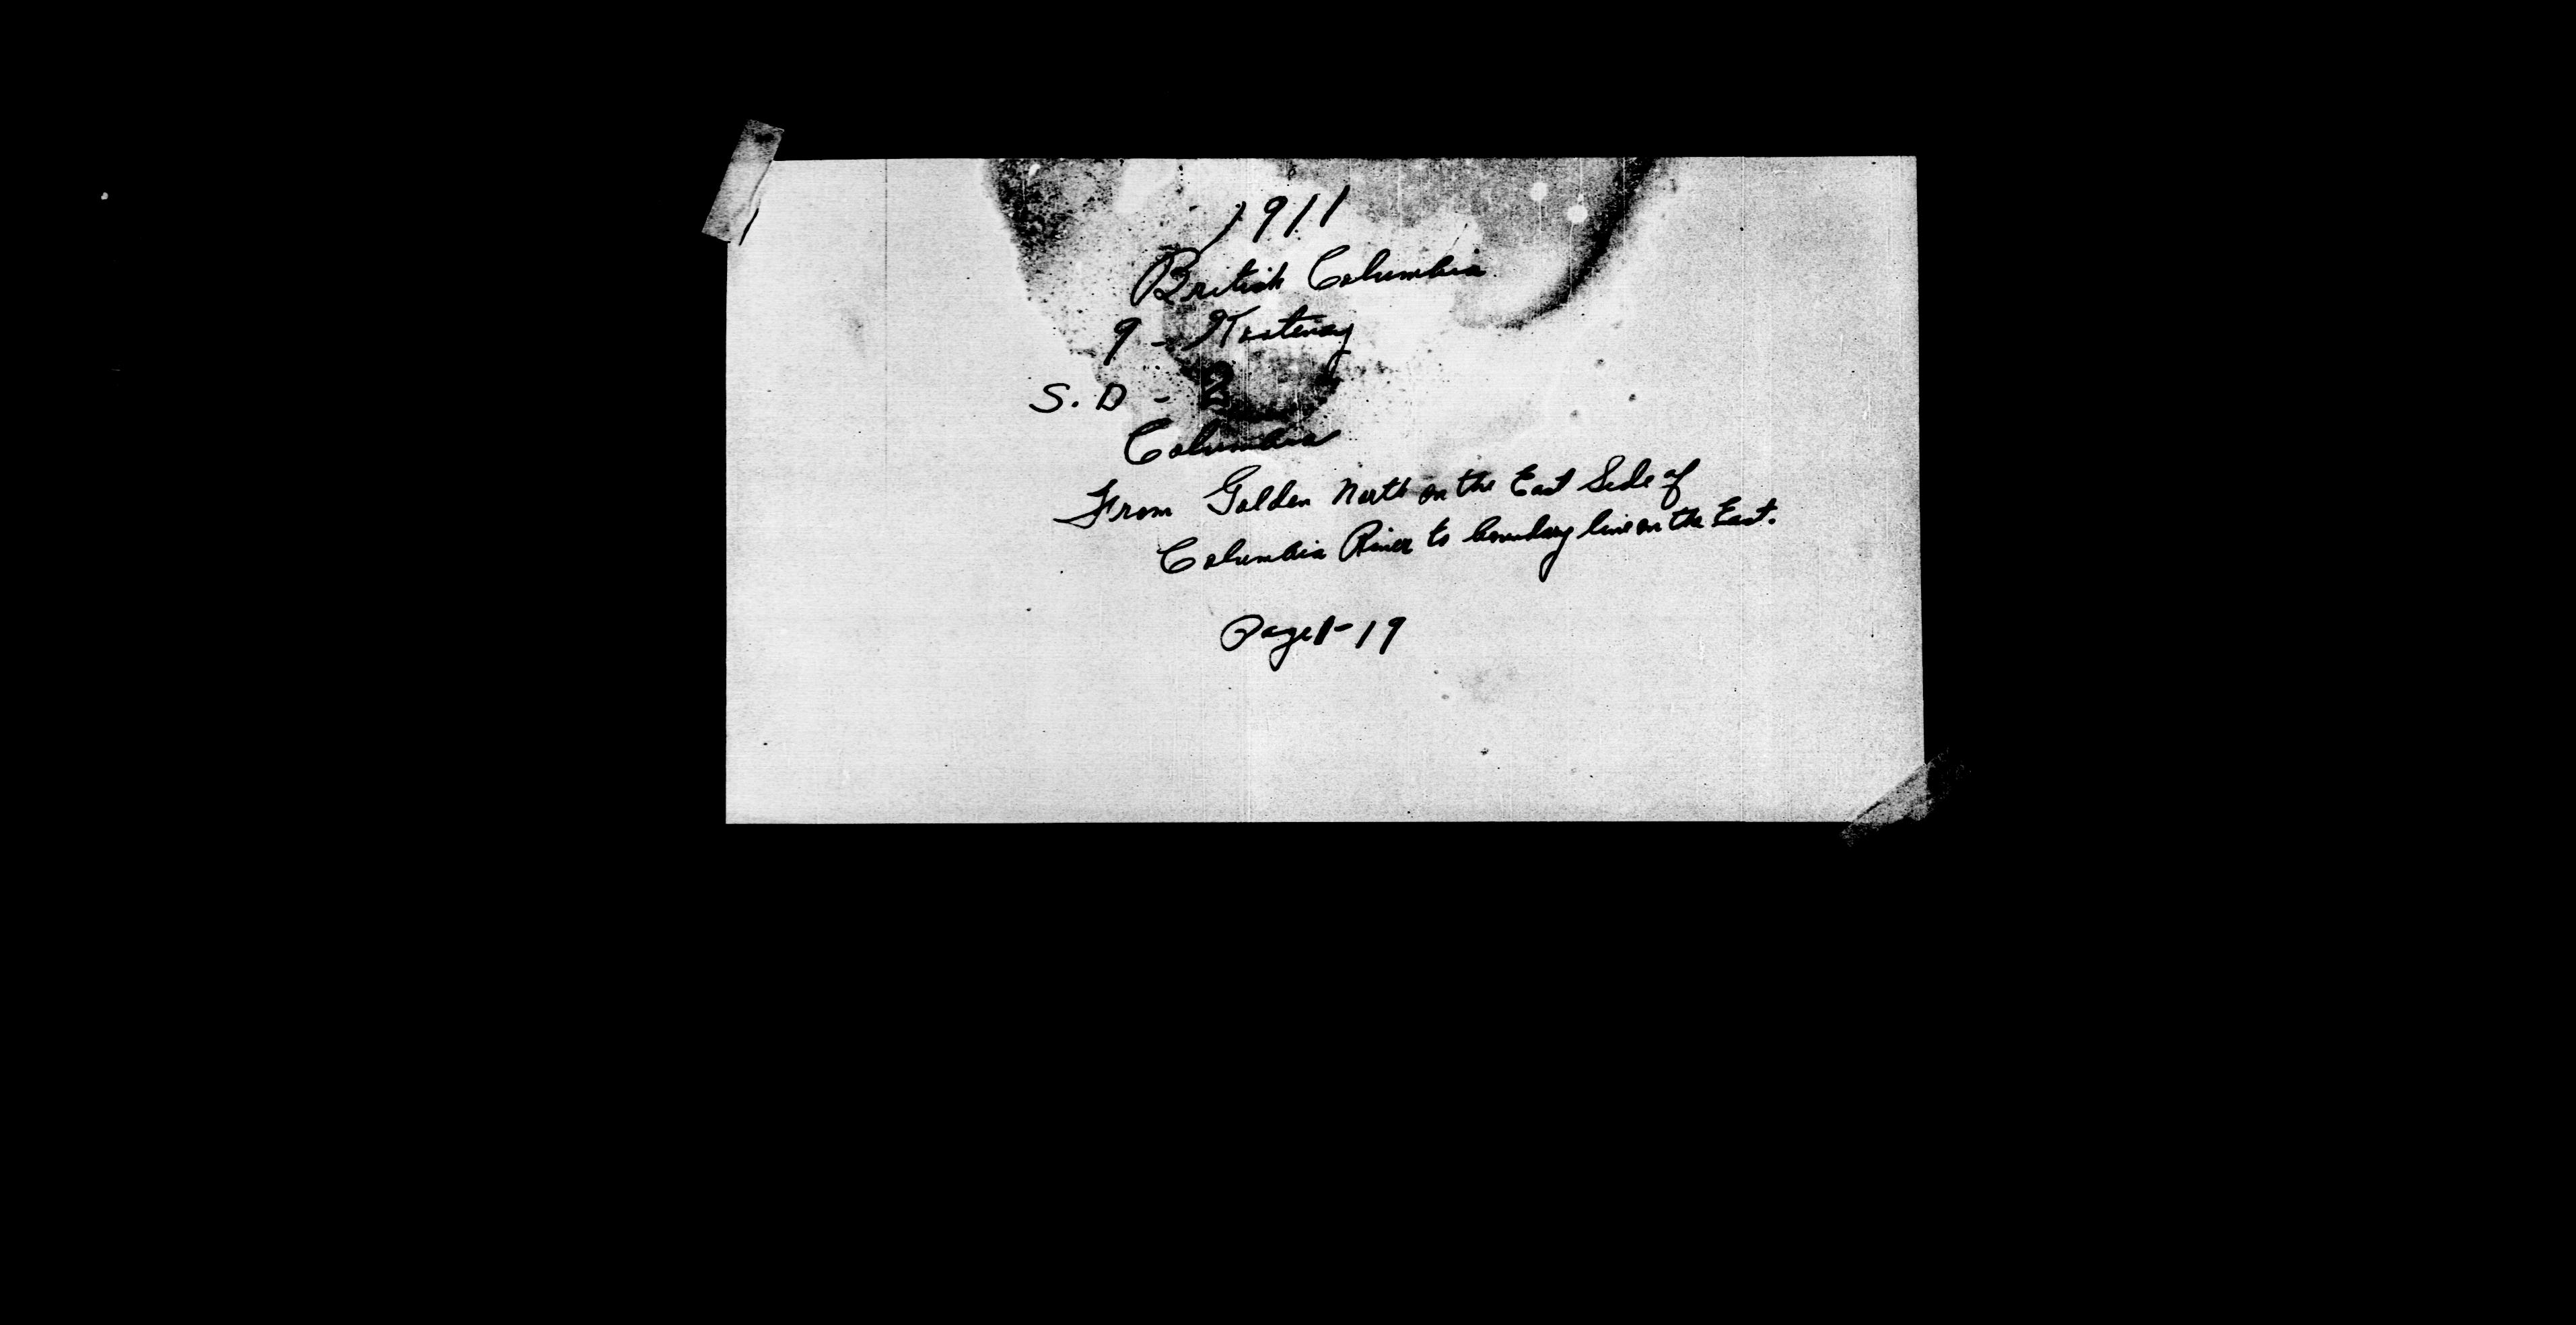 1911
British Columbia
9 - Kootenay
S. D - 2
Columbia
From Golden North on the East Side of
Columbia River to boundary line on the East.
Page 1-19